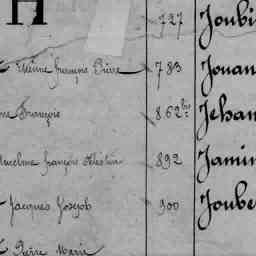 H 727 Joubi
Etienne françois Pierre 783 Jouan
François 862 bis Jehan
Anselme françois Célestin 892 Jamin
Jacques Joseph 900 Joube
Pierre Marie